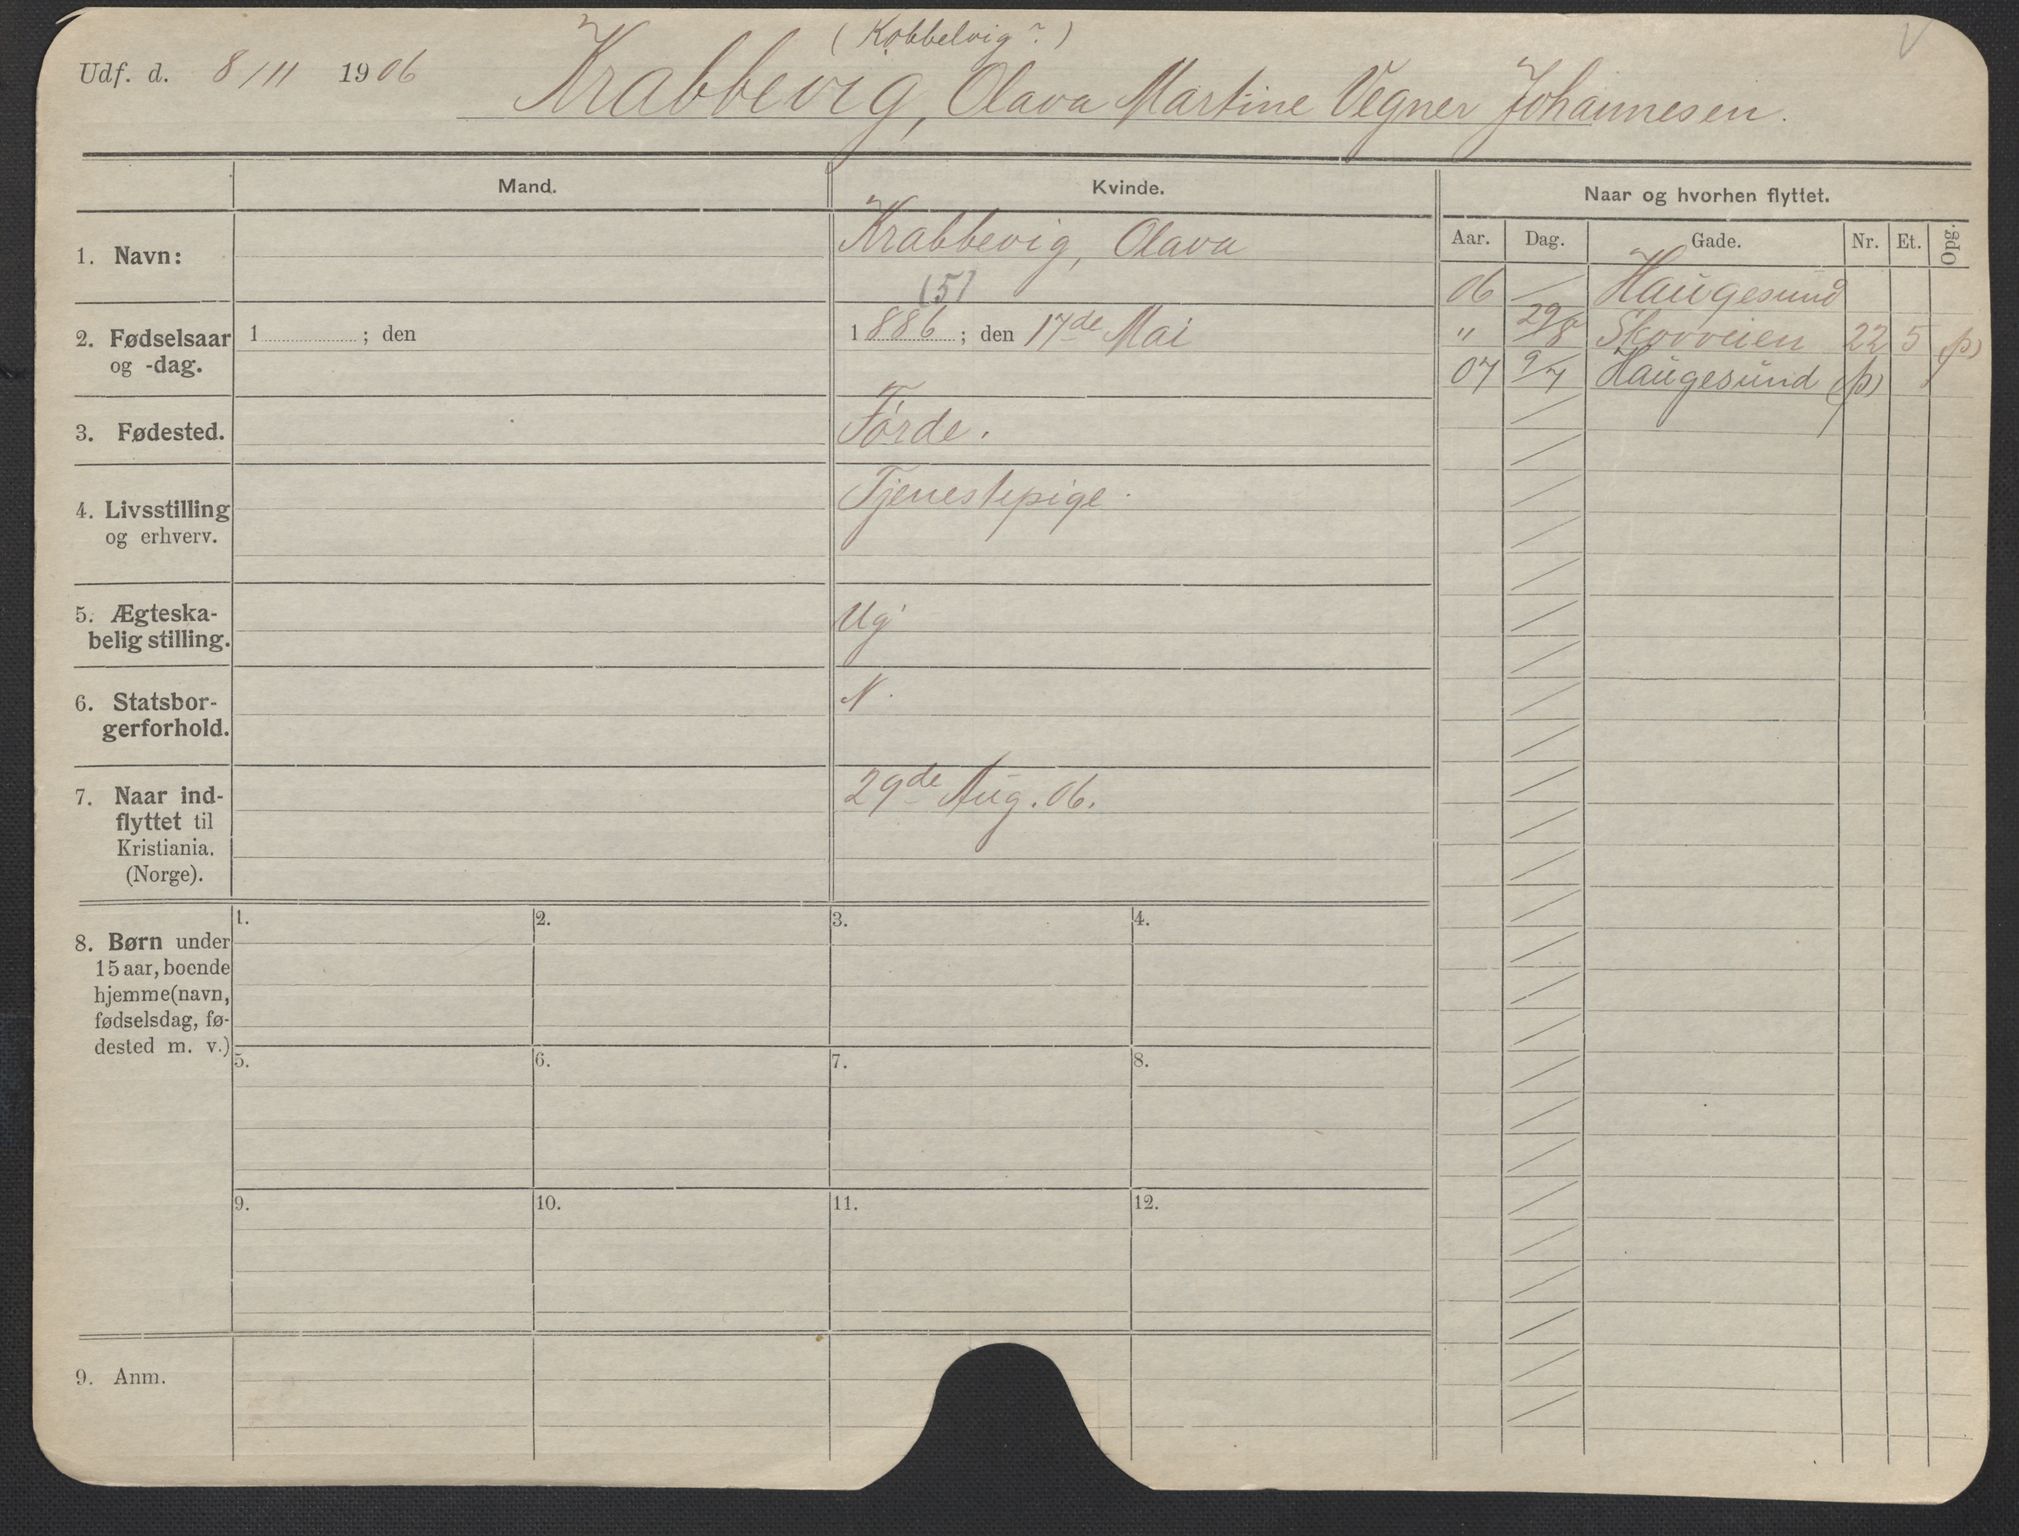 (Kobbelvig?)
Udf. d. 8/11 1906 Krabbevig, Olava Martine Vegner Johannesen.
Mand. Kvinde. Naar og hvorhen flyttet.
Aar. Dag. Gade. Nr. Et. Opg.
1. Navn: Krabbevig, Olava
(5)
2. Fødselsaar og -dag.
1 ; den
1886 ; den 17de Mai
3. Fødested. Førde.
4. Livsstilling og erhverv. Tjenestepige.
5. Ægteska-
belig stilling. Ug
6. Statsbor-
gerforhold. N.
7. Naar ind-
flyttet til
Kristiania.
(Norge).
29de Aug. 06.
06 Haugesund
" 29/8 Skovveien 22 5 (p)
07 9/7 Haugesund (p)
8. Børn under
15 aar, boende
hjemme (navn,
fødselsdag, fø-
dested m. v.)
1. 2. 3. 4.
5. 6. 7. 8.
9. 10. 11. 12.
9. Anm.
V